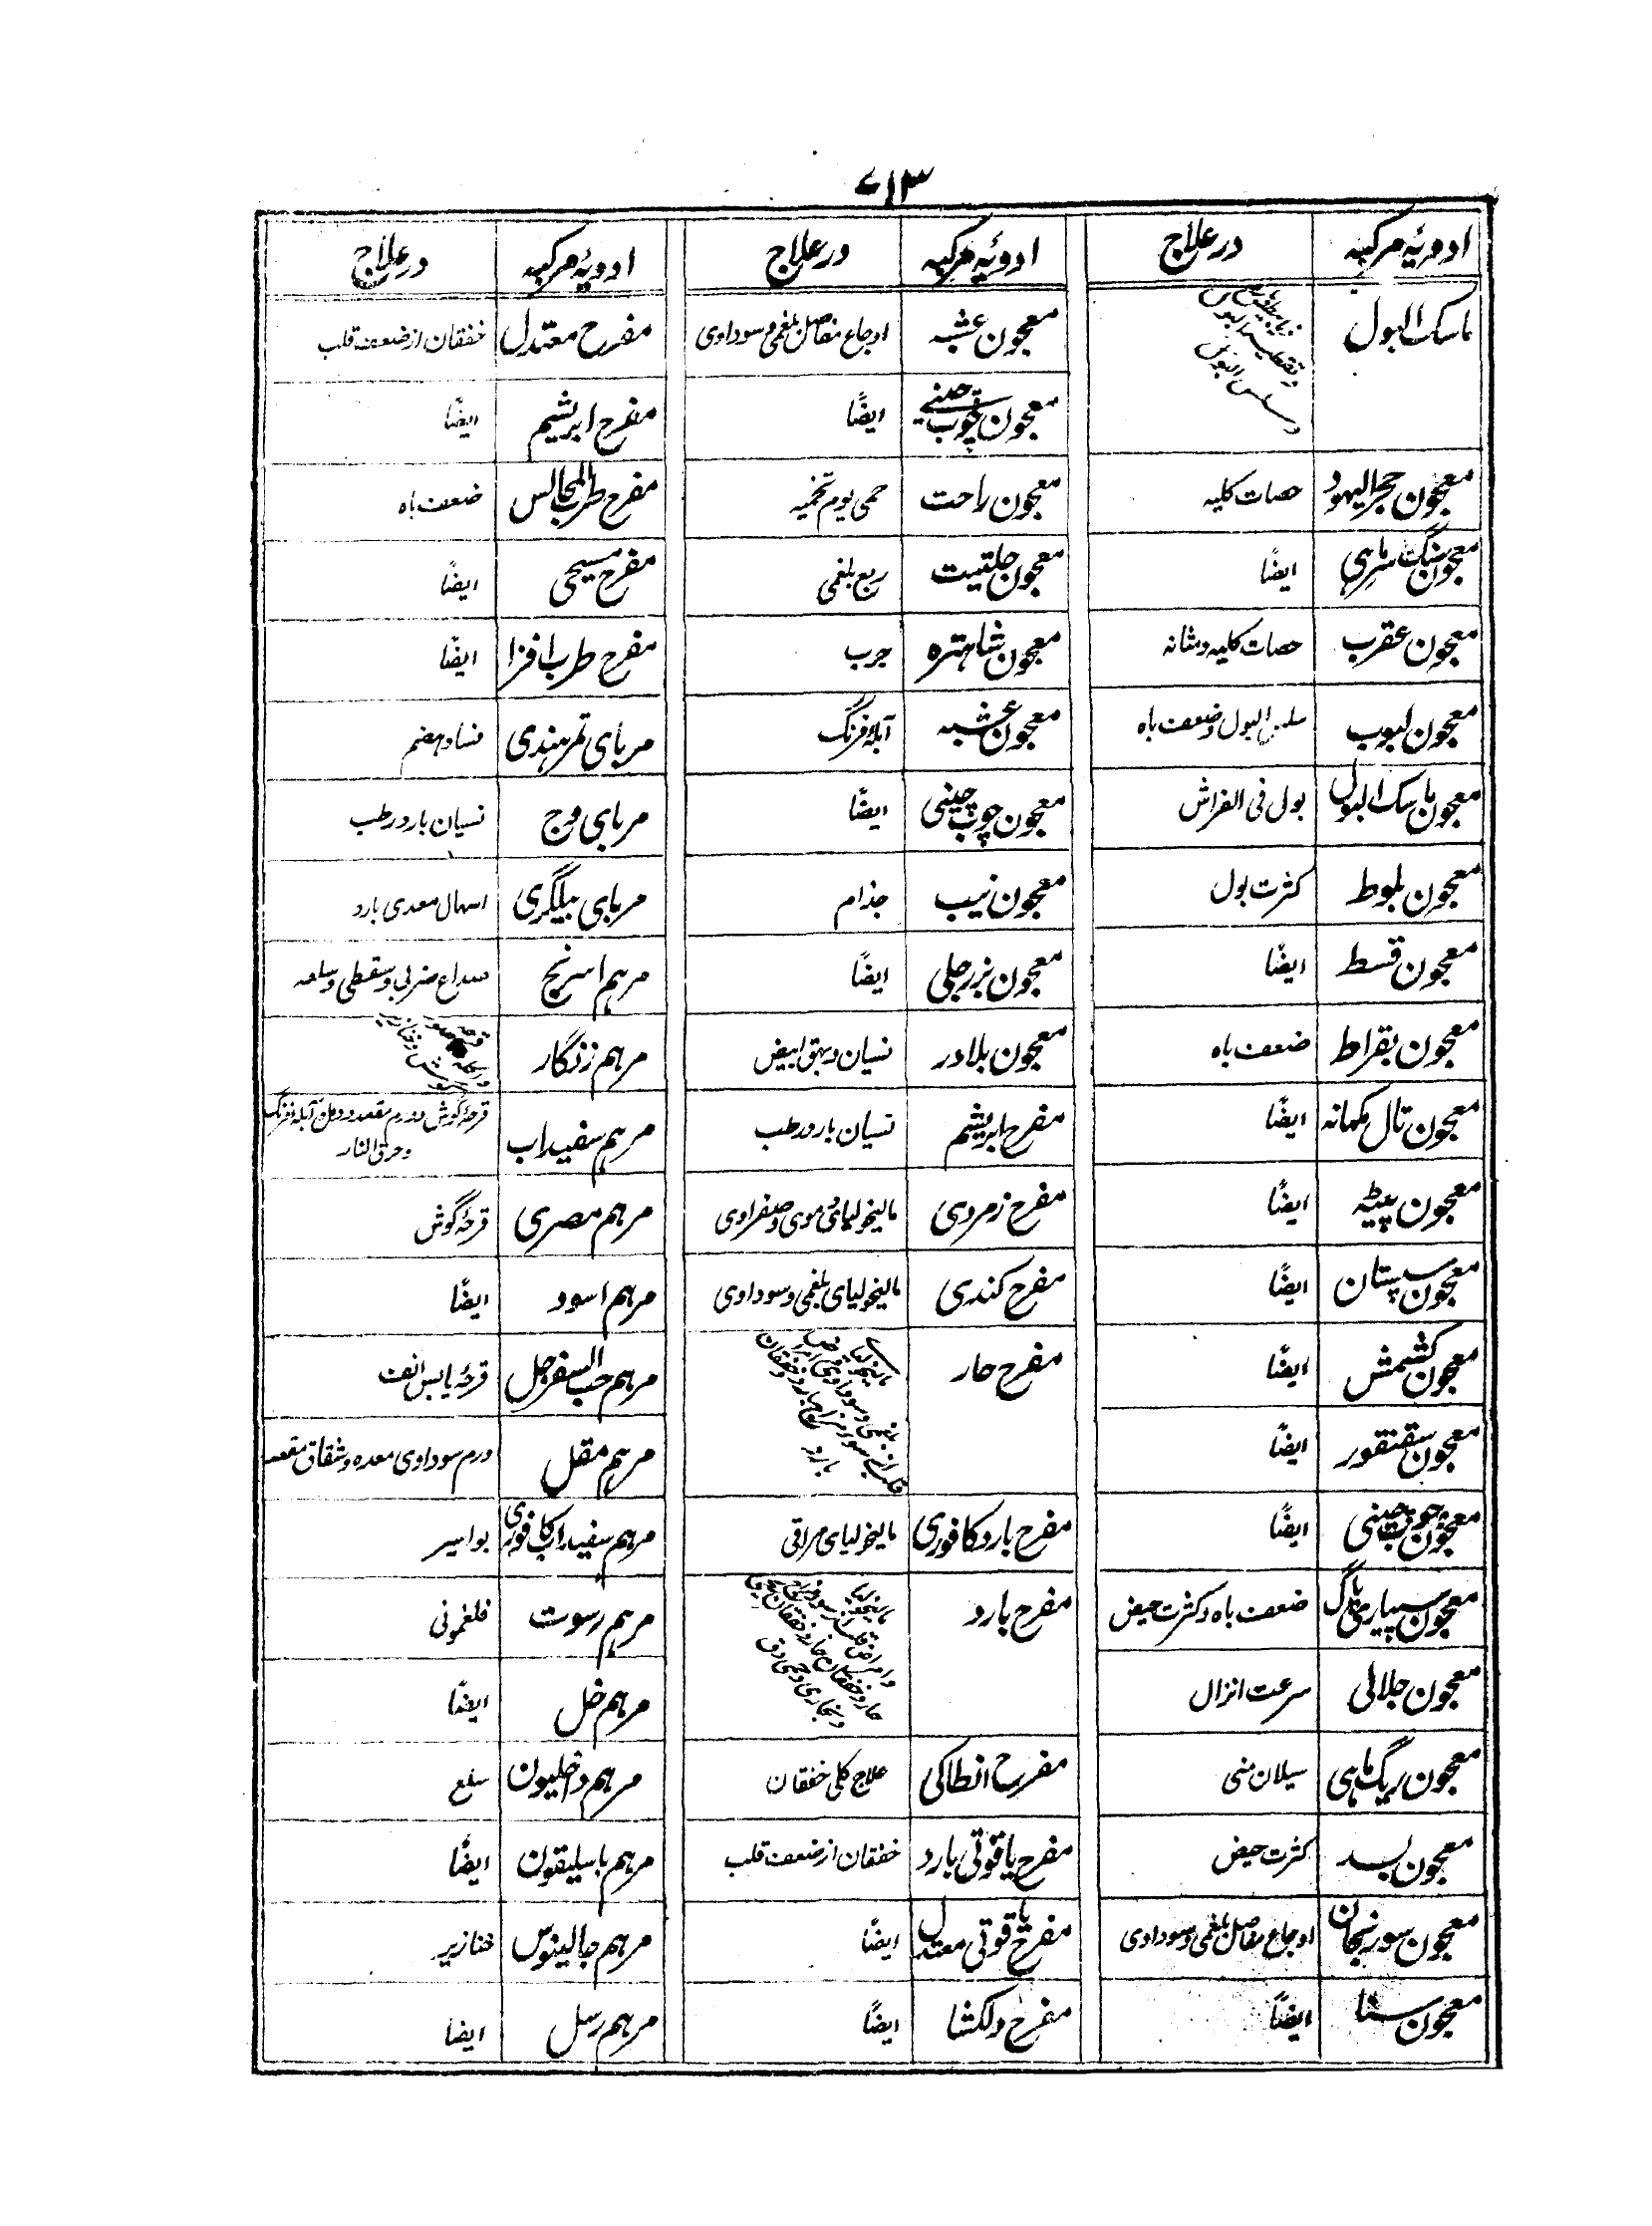 ۷۱۳
ادویۂ مرکبہ | در علاج | ادویۂ مرکبہ | در علاج | ادویۂ مرکبہ | در علاج
ماسک البول | ذیابیطس و تقطیر البول و سلس البول
معجون حجر الیہود | حصات کلیہ
معجون سنگ سر ماہی | ایضًا
معجون عقرب | حصات کلیہ و مثانہ
معجون لبوب | سلس البول و ضعف باہ
معجون ماسک البول | بول فی الفراش
معجون بلوط | کثرت بول
معجون قسط | ایضًا
معجون بقراط | ضعف باہ
معجون تال مکہانہ | ایضًا
معجون پیٹہ | ایضًا
معجون سپستان | ایضًا
معجون کشمش | ایضًا
معجون سقنقور | ایضًا
معجون چوب چینی | ایضًا
معجون سپیاری پاک | ضعف باہ و کثرت حیض
معجون جلالی | سرعت انزال
معجون ریگ ماہی | سیلان منی
معجون بسد | کثرت حیض
معجون سورنجان | اوجاع مفاصل بلغمی و سوداوی
معجون سنا | ایضًا
معجون عشبہ | اوجاع مفاصل بلغمی و سوداوی
معجون چوب چینے | ایضًا
معجون راحت | حمی یوم تخمیہ
معجون حلتیت | ربع بلغمی
معجون شاہترہ | جرب
معجون عشبہ | آبلۂ فرنگ
معجون چوب چینی | ایضًا
معجون نیب | جذام
معجون بزرجلی | ایضًا
معجون بلادر | نسیان و بہق ابیض
مفرح ابریشم | نسیان بارد رطب
مفرح زمردی | مالیخولیای دموی و صفراوی
مفرح کندی | مالیخولیای بلغمی و سوداوی
مفرح حار | مالیخولیاے بلغمی و سوداوی و خفقان بارد
مفرح بارد کافوری | مالیخولیای مراقی
مفرح بارد | مالیخولیا و امراض قلب از سوء مزاج حار و خفقان و بخاری و حمی دق
مفرح انطاکی | علاج کلی خفقان
مفرح یاقوتی بارد | خفقان از ضعف قلب
مفرح یاقوتی معتدل | ایضًا
مفرح دلکشا | ایضًا
مفرح معتدل | خفقان از ضعف قلب
مفرح ابریشم | ایضًا
مفرح طرب المجالس | ضعف باہ
مفرح مسیحی | ایضًا
مفرح طرب افزا | ایضًا
مربای تمر ہندی | فساد ہضم
مربای وج | نسیان بارد رطب
مربای بیلگری | اسہال معدی بارد
مرہم اسرنج | صداع ضربی و سقطی و سلعہ
مرہم زنگار | گوش و خنازیر
مرہم سفیداب | قرحۂ گوش و ورم مقعد و دمل و آبلۂ فرنگ و حرق النار
مرہم مصری | قرحۂ گوش
مرہم اسود | ایضًا
مرہم حب السفرجل | قرحۂ یابس انف
مرہم مقل | ورم سوداوی معدہ و شقاق مقعد
مرہم سفیداب کافوری | بواسیر
مرہم رسوت | فلغمونی
مرہم خل | ایضًا
مرہم داخلیون | سلع
مرہم باسلیقون | ایضًا
مرہم جالینوس | خنازیر
مرہم رسل | ایضا